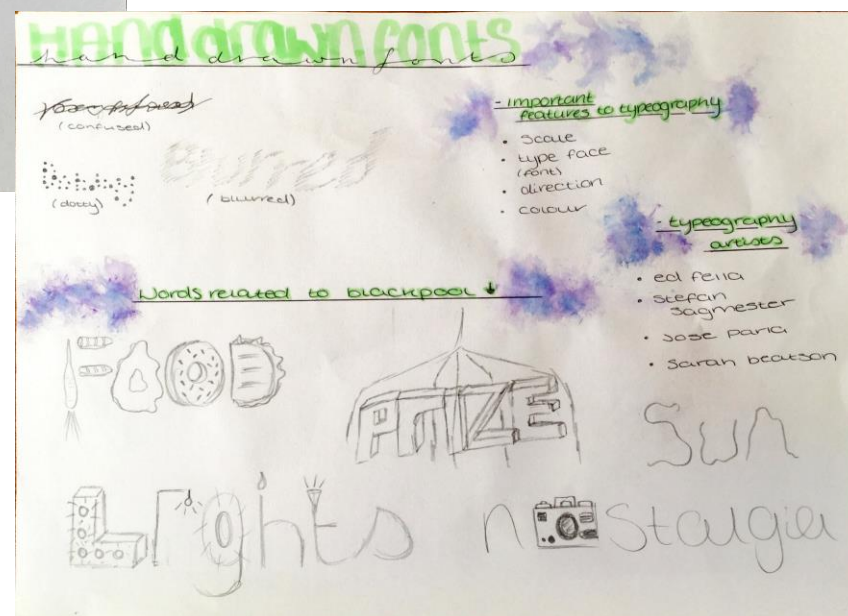 Hand drawn fonts
hand drawn fonts
confused
(confused)
Dotty
(dotty)
Blurred
(blurred)
- important
features to typeography
• scale
• type face
(font)
• direction
• colour
- typeography
artists
• ed fella
• stefan
sagmester
• Jose Paria
• sarah beatson
Words related to blackpool ↓
FOOD
PRIZE
Sun
Lights
nostalgia